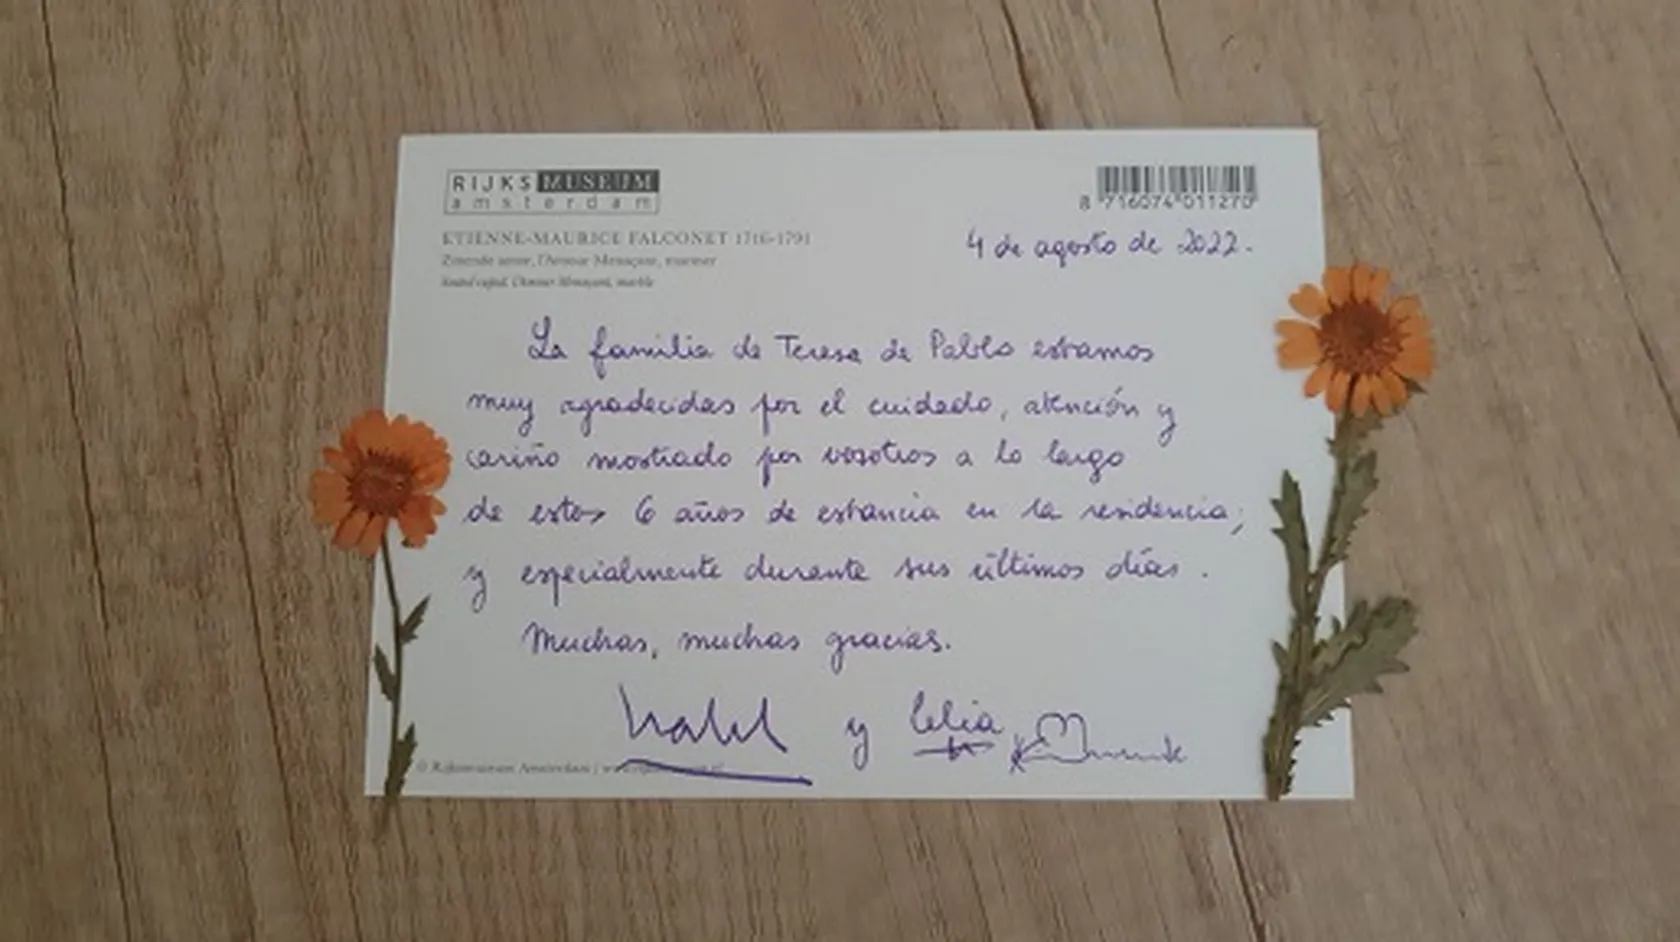 RIJKSMUSEUM
amsterdam
8 716074 011270
ETIENNE-MAURICE FALCONET 1716-1791
4 de agosto de 2022.
l'Amour Menaçant, marmer
L'Amour Menaçant, marble
La familia de Teresa de Pablo estamos
muy agradecidas por el cuidado, atención y
cariño mostrado por vosotros a lo largo
de estos 6 años de estancia en la residencia;
y especialmente durante sus últimos días.
Muchas, muchas gracias.
y Celia
© Rijksmuseum Amsterdam |